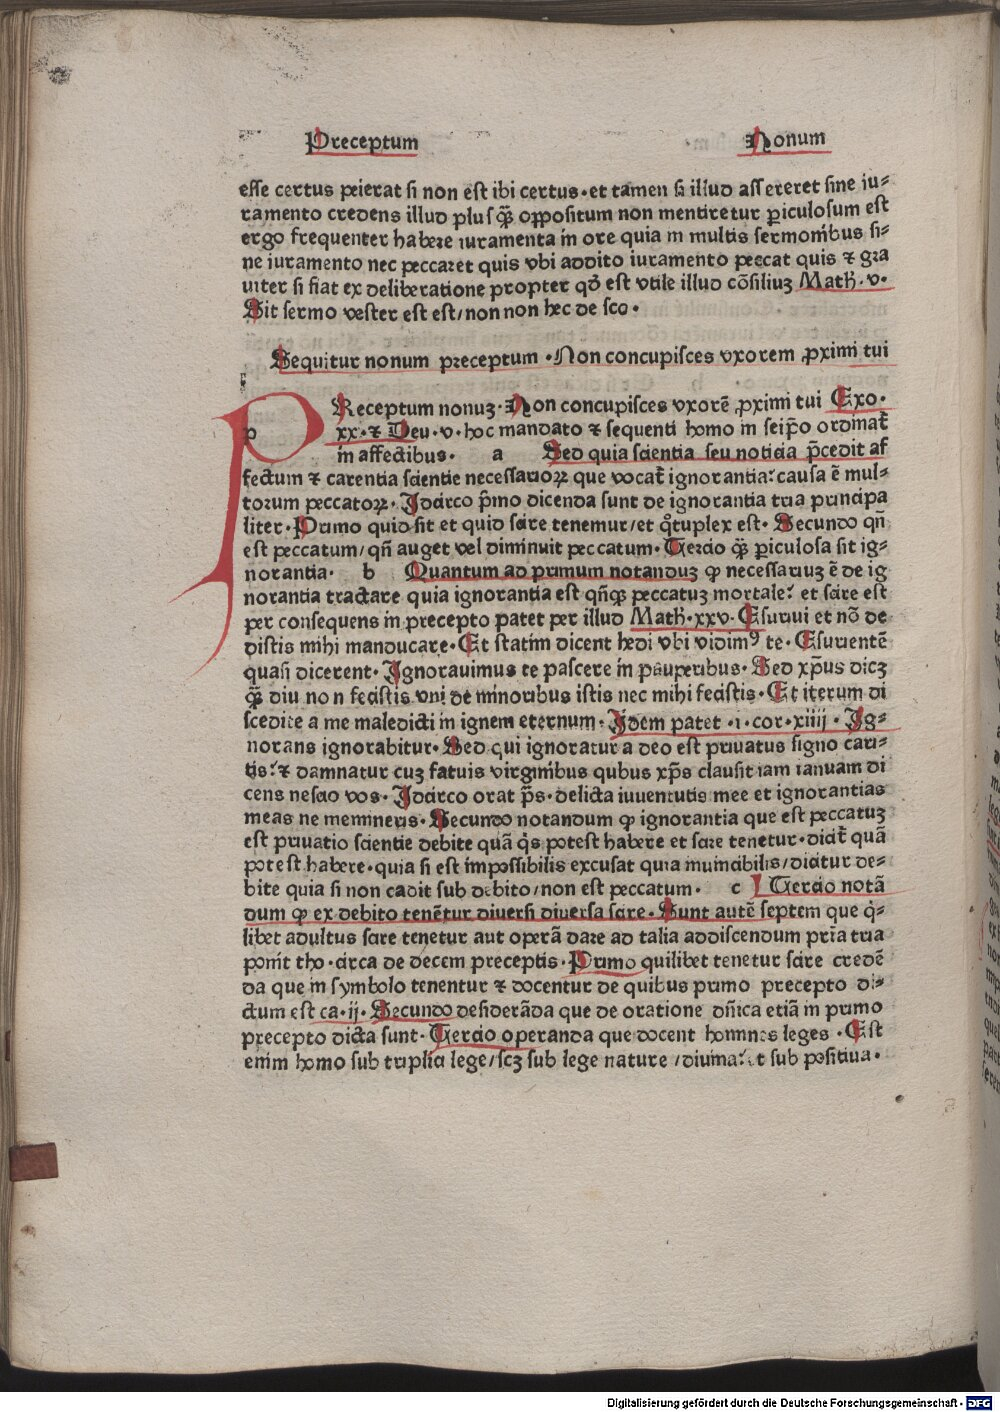 Preceptum Nonum
esse certus peierat si non est ibi certus·et tamen si illud assereret sine iu⸗
ramento credens illud plusꝗ̃ oppositum non mentiretur ꝑiculosum est
ergo frequenter habere iuramenta in ore quia in multis sermonibus si⸗
ne iuramento nec peccaret quis vbi addito iuramento peccat quis ⁊ gra
uiter si fiat ex deliberatione propter qđ est vtile illud cōsiliuꝫ Math̄·v·
Sit sermo vester est est/non non hec de sco·
Sequitur nonum preceptum·Non concupisces vxorem ꝓximi tui
p
Receptum nonuꝫ·Non concupisces vxorē ꝓximi tui Exo·
xx·⁊ Deu·v·hoc mandato ⁊ sequenti homo in seip̄o ordinat̄
in affectibus· a Sed quia scientia seu noticia p̄cedit af
fectum ⁊ carentia scientie necessarioꝝ que vocat̄ ignorantia:causa ē mul⸗
torum peccatoꝝ·Idcirco p̄mo dicenda sunt de ignorantia tria principa
liter·Primo quid sit et quid scire tenemur/et qͦtuplex est·Secundo qn̄
est peccatum/qn̄ auget vel diminuit peccatum·Tercio ꝗ̃ ꝑiculosa sit ig⸗
norantia· b Quantum ad primum notanduꝫ ꝙ necessariuꝫ ē de ig
norantia tractare quia ignorantia est qn̄qꝫ peccatuꝫ mortale: et scire est
per consequens in precepto patet per illud Math̄·xxv·Esuriui et nō de
distis mihi manducare·Et statim dicent hedi vbi vidimꝰ te·Esurientē
quasi dicerent·Ignorauimus te pascere in pauperibus·Sed xp̄us dicꝫ
ꝗ̃ diu non fecistis vni de minoribus istis nec mihi fecistis·Et iterum di
scedite a me maledicti in ignem eternum·Idem patet·i·cor·xiiij·Ig⸗
norans ignorabitur·Sed qui ignoratur a deo est priuatus signo cari⸗
tis:⁊ damnatur cuꝫ fatuis virginibus qubus xp̄s clausit iam ianuam di
cens nescio vos·Idcirco orat p̄s·delicta iuuentutis mee et ignorantias
meas ne memineris·Secundo notandum ꝙ ignorantia que est peccatuꝫ
est priuatio scientie debite quā q̄s potest habere et scire tenetur·dicit̄ quā
potest habere·quia si est impossibilis excusat quia inuincibilis/dicitur de⸗
bite quia si non cadit sub debito/non est peccatum· c Tercio notā
dum ꝙ ex debito tenētur diuersi diuersa scire·Sunt autē septem que q̇⸗
libet adultus scire tenetur aut operā dare ad talia addiscendum pria tria
ponit tho·circa de decem preceptis·Primo quilibet tenetur scire credē
da que in symbolo tenentur ⁊ docentur de quibus primo precepto di⸗
ctum est ca·ij·Secundo desiderāda que de oratione dn̄ica etiā in primo
precepto dicta sunt·Tercio operanda que docent homines leges·Est
enim homo sub triplici lege/scꝫ sub lege nature/diuina:et sub positiua·
Digitalisierung gefördert durch die Deutsche Forschungsgemeinschaft - DFG